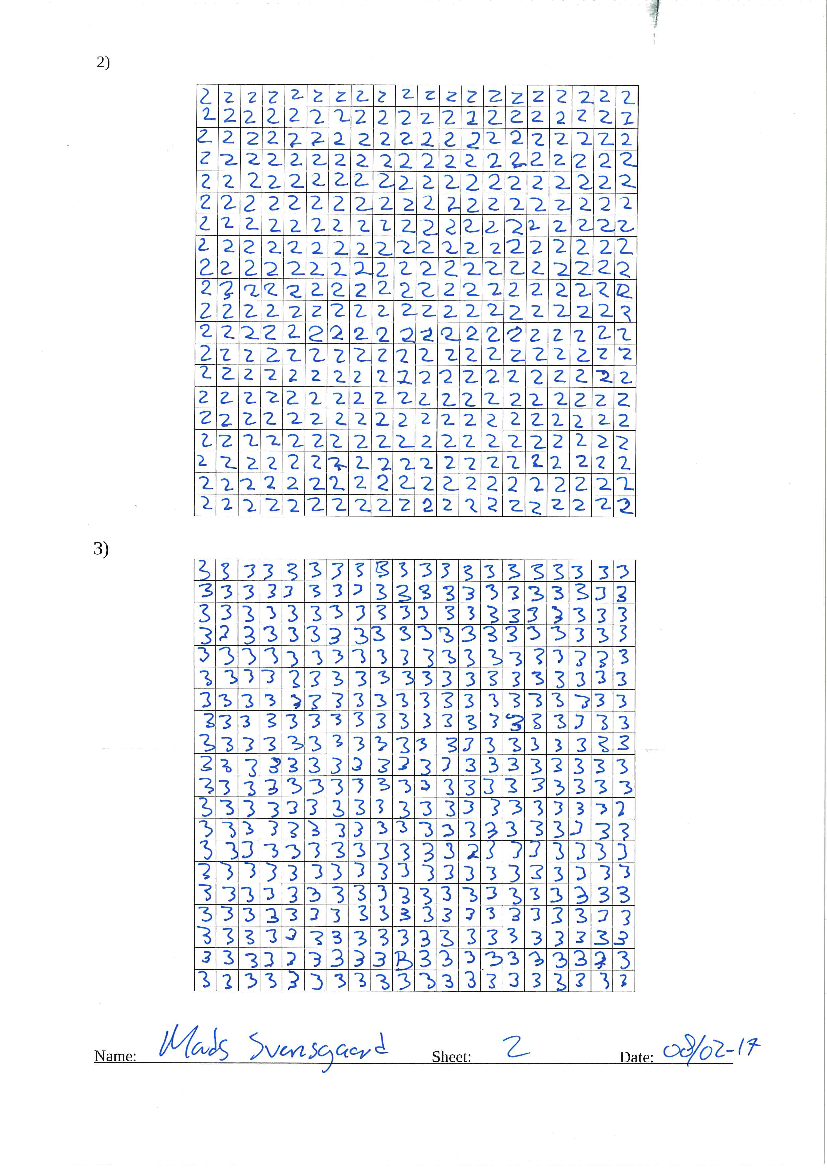 2)
2 2 2 2 2 2 2 2 2 2 2 2 2 2 2 2 2 2 2 2
2 2 2 2 2 2 2 2 2 2 2 2 2 2 2 2 2 2 2 2
2 2 2 2 2 2 2 2 2 2 2 2 2 2 2 2 2 2 2 2
2 2 2 2 2 2 2 2 2 2 2 2 2 2 2 2 2 2 2 2
2 2 2 2 2 2 2 2 2 2 2 2 2 2 2 2 2 2 2 2
2 2 2 2 2 2 2 2 2 2 2 2 2 2 2 2 2 2 2 2
2 2 2 2 2 2 2 2 2 2 2 2 2 2 2 2 2 2 2 2
2 2 2 2 2 2 2 2 2 2 2 2 2 2 2 2 2 2 2 2
2 2 2 2 2 2 2 2 2 2 2 2 2 2 2 2 2 2 2 2
2 2 2 2 2 2 2 2 2 2 2 2 2 2 2 2 2 2 2 2
2 2 2 2 2 2 2 2 2 2 2 2 2 2 2 2 2 2 2 2
2 2 2 2 2 2 2 2 2 2 2 2 2 2 2 2 2 2 2 2
2 2 2 2 2 2 2 2 2 2 2 2 2 2 2 2 2 2 2 2
2 2 2 2 2 2 2 2 2 2 2 2 2 2 2 2 2 2 2 2
2 2 2 2 2 2 2 2 2 2 2 2 2 2 2 2 2 2 2 2
2 2 2 2 2 2 2 2 2 2 2 2 2 2 2 2 2 2 2 2
2 2 2 2 2 2 2 2 2 2 2 2 2 2 2 2 2 2 2 2
2 2 2 2 2 2 2 2 2 2 2 2 2 2 2 2 2 2 2 2
2 2 2 2 2 2 2 2 2 2 2 2 2 2 2 2 2 2 2 2
2 2 2 2 2 2 2 2 2 2 2 2 2 2 2 2 2 2 2 2
3)
3 3 3 3 3 3 3 3 3 3 3 3 3 3 3 3 3 3 3 3
3 3 3 3 3 3 3 3 3 3 3 3 3 3 3 3 3 3 3 3
3 3 3 3 3 3 3 3 3 3 3 3 3 3 3 3 3 3 3 3
3 3 3 3 3 3 3 3 3 3 3 3 3 3 3 3 3 3 3 3
3 3 3 3 3 3 3 3 3 3 3 3 3 3 3 3 3 3 3 3
3 3 3 3 3 3 3 3 3 3 3 3 3 3 3 3 3 3 3 3
3 3 3 3 3 3 3 3 3 3 3 3 3 3 3 3 3 3 3 3
3 3 3 3 3 3 3 3 3 3 3 3 3 3 3 3 3 3 3 3
3 3 3 3 3 3 3 3 3 3 3 3 3 3 3 3 3 3 3 3
3 3 3 3 3 3 3 3 3 3 3 3 3 3 3 3 3 3 3 3
3 3 3 3 3 3 3 3 3 3 3 3 3 3 3 3 3 3 3 3
3 3 3 3 3 3 3 3 3 3 3 3 3 3 3 3 3 3 3 3
3 3 3 3 3 3 3 3 3 3 3 3 3 3 3 3 3 3 3 3
3 3 3 3 3 3 3 3 3 3 3 3 3 3 3 3 3 3 3 3
3 3 3 3 3 3 3 3 3 3 3 3 3 3 3 3 3 3 3 3
3 3 3 3 3 3 3 3 3 3 3 3 3 3 3 3 3 3 3 3
3 3 3 3 3 3 3 3 3 3 3 3 3 3 3 3 3 3 3 3
3 3 3 3 3 3 3 3 3 3 3 3 3 3 3 3 3 3 3 3
3 3 3 3 3 3 3 3 3 3 3 3 3 3 3 3 3 3 3 3
3 3 3 3 3 3 3 3 3 3 3 3 3 3 3 3 3 3 3 3
Name: Mads Svensgaard Sheet: 2 Date: 08/02-17